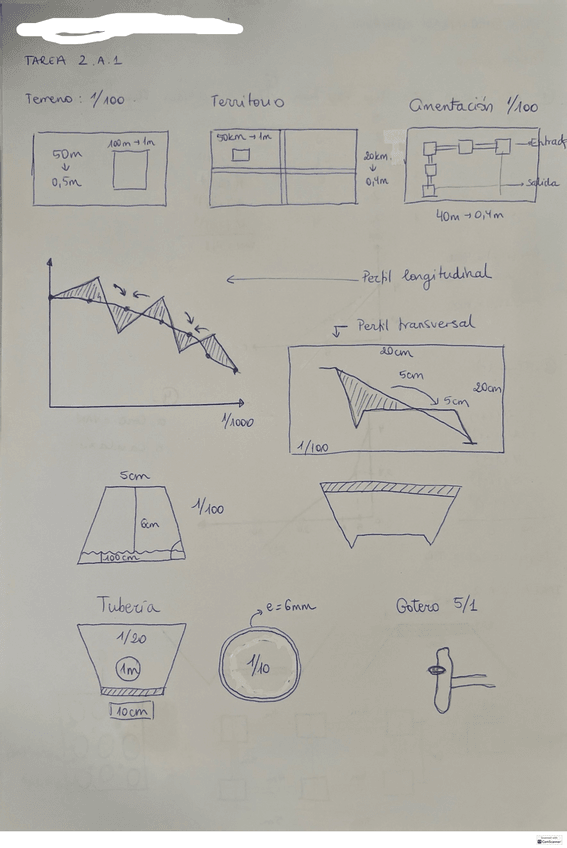 TAREA 2.A.1
Terreno: 1/100
Territorio
Cimentación 1/100
50m
↓
0,5m
100m → 1m
50km → 1m
20km.
↓
0,4m
Entrada
Salida
40m → 0,4m
Perfil longitudinal
1/1000
Perfil transversal
20cm
5cm
20cm
5cm
1/100
5cm
6cm
100cm
1/100
Tubería
1/20
1m
10cm
e=6mm
1/10
Gotero 5/1
CamScanner